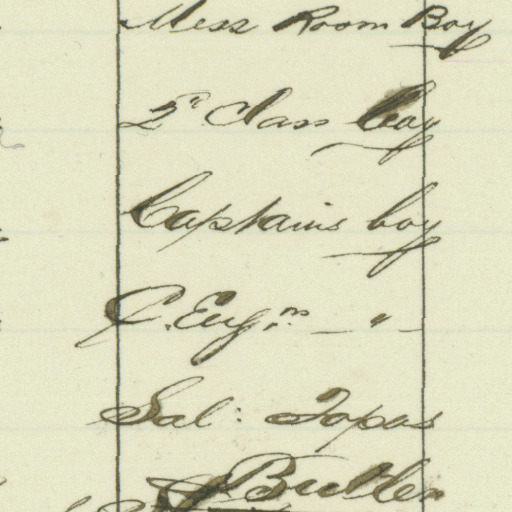 Mess Room Boy
2" Class boy
Captains boy
C. Eng.rs — " —
Sal: Topas
Butler